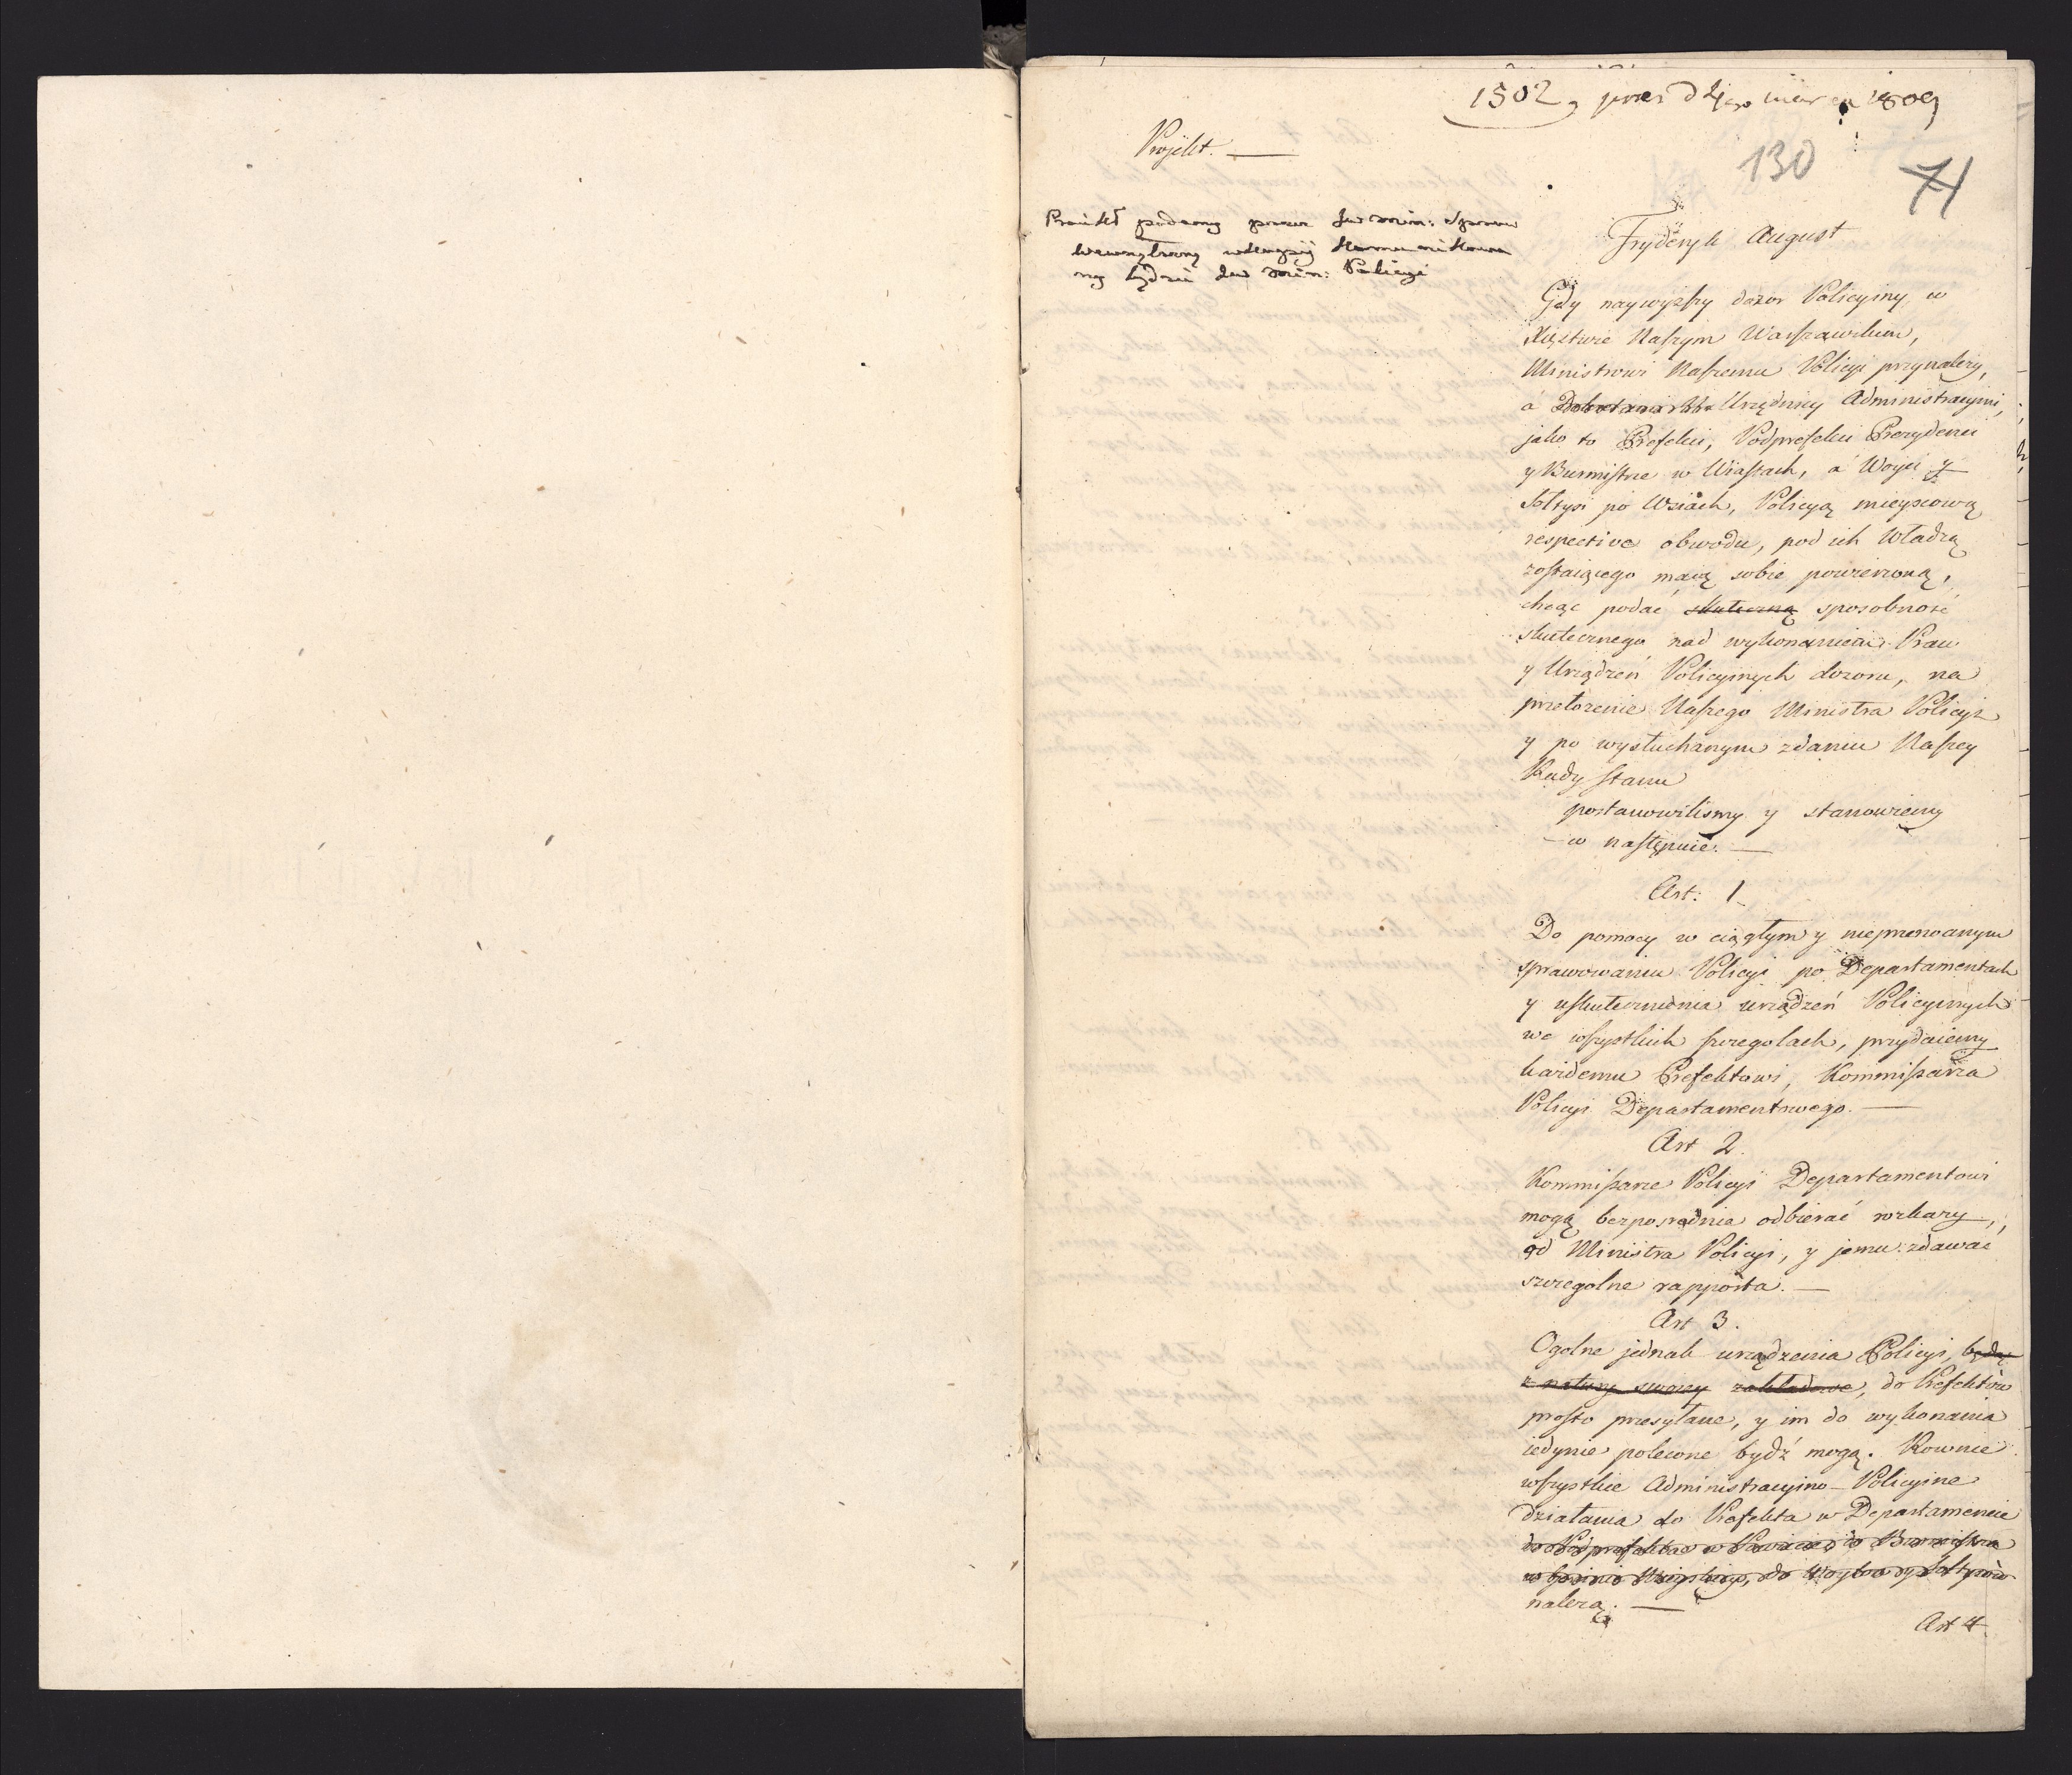 1502, pres d 4go mar ca 1809
130
71
Projekt. —
Proiekt podany przez JW Min: Spraw
wewnętrzny
ny będzie JW Min: Policyi
Fryderyk August
Gdy naywyższy dozor Policyiny w
Xięstwie Naszym Warszawskim,
Ministrowi Naszemu Policyi przynależy,
á Urzędnicy Administracyini,
jako to Prefekci, Podprefekci Prezydenci
y Burmistrze w Miastach, á Woyci y
Sołtysi po Wsiach, Policyą mieyscową
respective obwodu, pod ich Władzą
zostaiącego maią sobie powierzoną,
chcąc podać skuteczną sposobność
skutecznego nad wykonaniem Praw
y Urządzeń Policyinych dozoru, na
przełożenie Naszego Ministra Policyi
y po wysłuchanym zdaniu Naszey
Rady Stanu
postanowilismy y stanowiemy
co następuie. —
Art: 1
Do pomocy w ciągłym y nieprzerwanym
sprawowaniu Policyi po Departamentach
y uskutecznienia urządzeń Policyinych
we wszystkich szczegolach, przydaiemy
każdemu Prefektowi, Kommissarza
Policyi Departamentowego. —
Art 2.
Kommissarze Policyi Departamentowi
mogą bezposrednia odbierać rozkazy,
od Ministra Policyi, y jemu zdawać
szczegolne rapporta. —
Art 3.
Ogolne jednak urządzenia Policyi, będą
z natury swoiey zakładowe, do Prefektow
prosto przesyłane, y im do wykonania
iedynie polecone bydź mogą. Rownie
wszystkie Administracyino-Policyine
działania do Prefekta w Departamencie
do Podprefektow w Powiecie do Burmistrza
w Gminie Mieyskiey, do Woytow y Sołtysow
należą. —
Art 4.